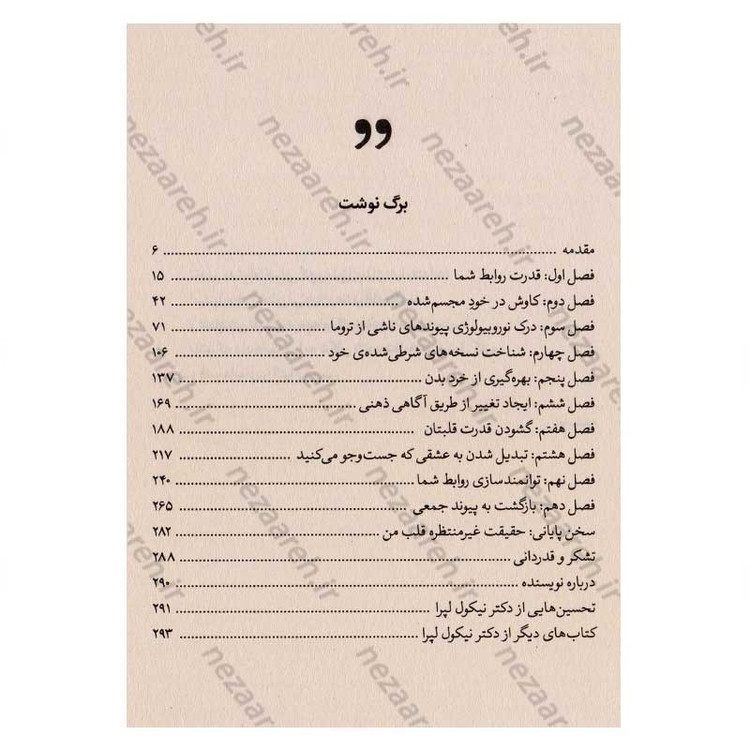 برگ نوشت
مقدمه ........ ۶
فصل اول: قدرت روابط شما ........ ۱۵
فصل دوم: کاوش در خودِ مجسم‌شده ........ ۴۲
فصل سوم: درک نوروبیولوژی پیوندهای ناشی از تروما ........ ۷۱
فصل چهارم: شناخت نسخه‌های شرطی‌شده‌ی خود ........ ۱۰۶
فصل پنجم: بهره‌گیری از خرد بدن ........ ۱۳۷
فصل ششم: ایجاد تغییر از طریق آگاهی ذهنی ........ ۱۶۹
فصل هفتم: گشودن قدرت قلبتان ........ ۱۸۸
فصل هشتم: تبدیل شدن به عشقی که جست‌وجو می‌کنید ........ ۲۱۷
فصل نهم: توانمندسازی روابط شما ........ ۲۴۰
فصل دهم: بازگشت به پیوند جمعی ........ ۲۶۵
سخن پایانی: حقیقت غیرمنتظره قلب من ........ ۲۸۲
تشکر و قدردانی ........ ۲۸۸
درباره نویسنده ........ ۲۹۰
تحسین‌هایی از دکتر نیکول لپرا ........ ۲۹۱
کتاب‌های دیگر از دکتر نیکول لپرا ........ ۲۹۳
nezaareh.ir